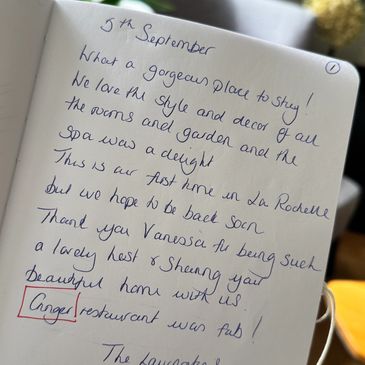 5th September
①
What a gorgeous place to stay!
We love the style and decor of all
the rooms and garden and the
Spa was a delight
This is our first time in La Rochelle
but we hope to be back soon
Thank you Vanessa for being such
a lovely host & Sharing your
beautiful home with us.
Ginger restaurant was fab!
The